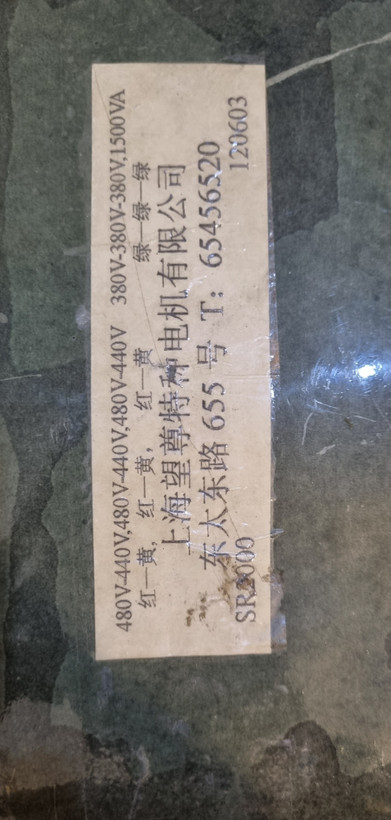 480V-440V,480V-440V,480V-440V 380V-380V-380V,1500VA
红—黄, 红—黄, 红—黄 绿—绿—绿
上海望尊特种电机有限公司
东太东路 655 号 T: 65456520
120603